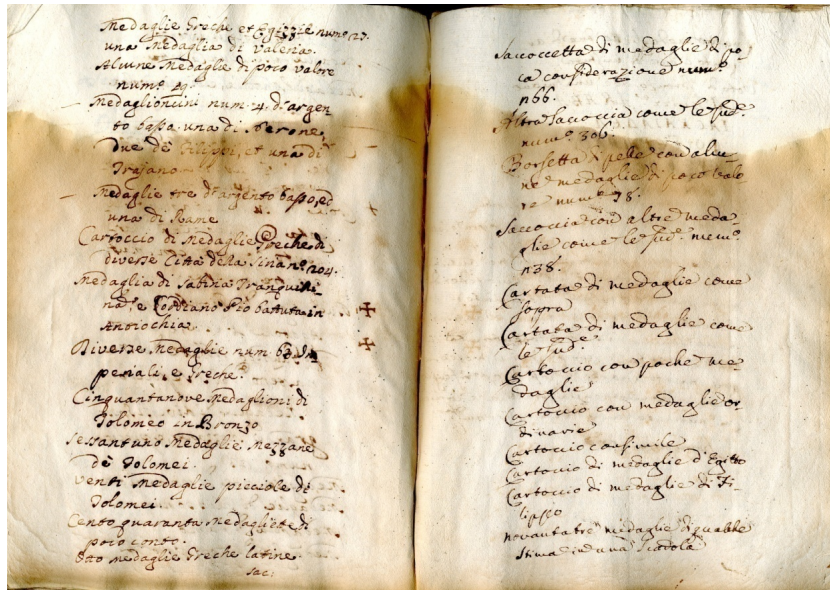 Medaglie Greche et Egizzie num.º 27.
una Medaglia di Valeria.
Alcune Medaglie di poco valore
num.º 29.
Medaglioncini num. 4. d'argen
to basso una di Nerone,
due de Filippi, et una di
Trajano
Medaglie tre d'argento basso, ed
una di Rame
Cartoccio di Medaglie Greche di
diverse Città della n.º 204.
Medaglia di Sabina Tranquilli
na, e Gordiano Pio battuta in
Antiochia.
Diverse Medaglie num 63. Im
periali, e Greche.
Cinquantanove Medaglioni di
Tolomeo in Bronzo
Sessantuno Medaglie Mezzane
de Tolomei.
Venti Medaglie picciole di
Tolomei
Cento quaranta Medagliete di
poco conto.
Otto medaglie Greche latine.
Sac:
Saccoccetta di medaglie di po
ca considerazione num.º
n 66.
Altra Saccoccia come le sud.e
num.º 306.
Borsetta di pelle con alcu
ne medaglie di poco valo
re num.º 78.
Saccoccia con altre meda
glie come le sud.e num.º
n 38.
Cartata di medaglie come
sopra
Cartata di medaglie come
le sud.e
Cartoccio con poche me
daglie
Cartoccio con medaglie or
dinarie
Cartoccio consimile
Cartoccio di medaglie d'Egitto
Cartoccio di medaglie di Fi-
lippo
novantatre medaglie di qualche
stima in una Scadola